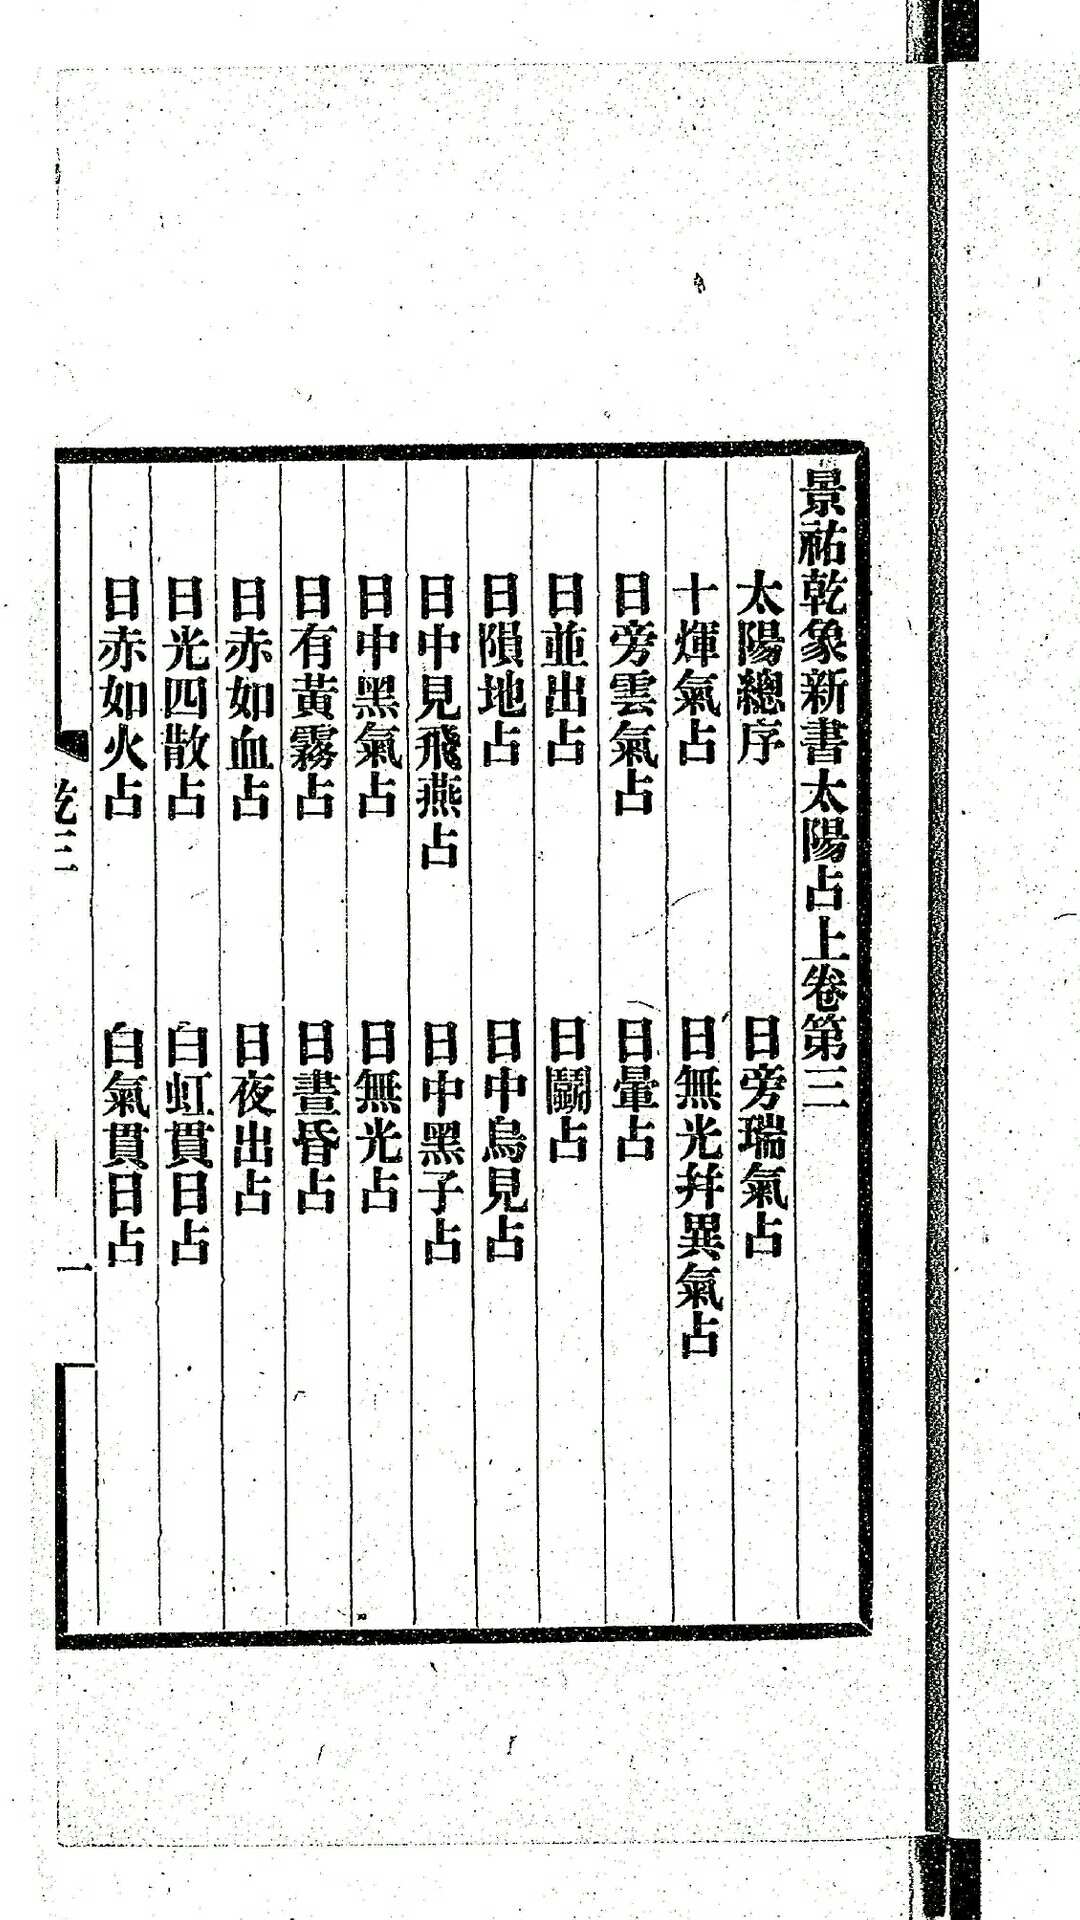 景祐乾象新書太陽占上卷第三
太陽總序　日旁瑞氣占
十煇氣占　日無光幷異氣占
日旁雲氣占　日暈占
日並出占　日鬭占
日隕地占　日中烏見占
日中見飛燕占　日中黑子占
日中黑氣占　日無光占
日有黃霧占　日晝昏占
日赤如血占　日夜出占
日光四散占　白虹貫日占
日赤如火占　白氣貫日占
乾三　一